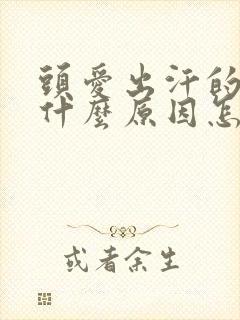 頭愛出汗的
什麼原因怎
或者余生